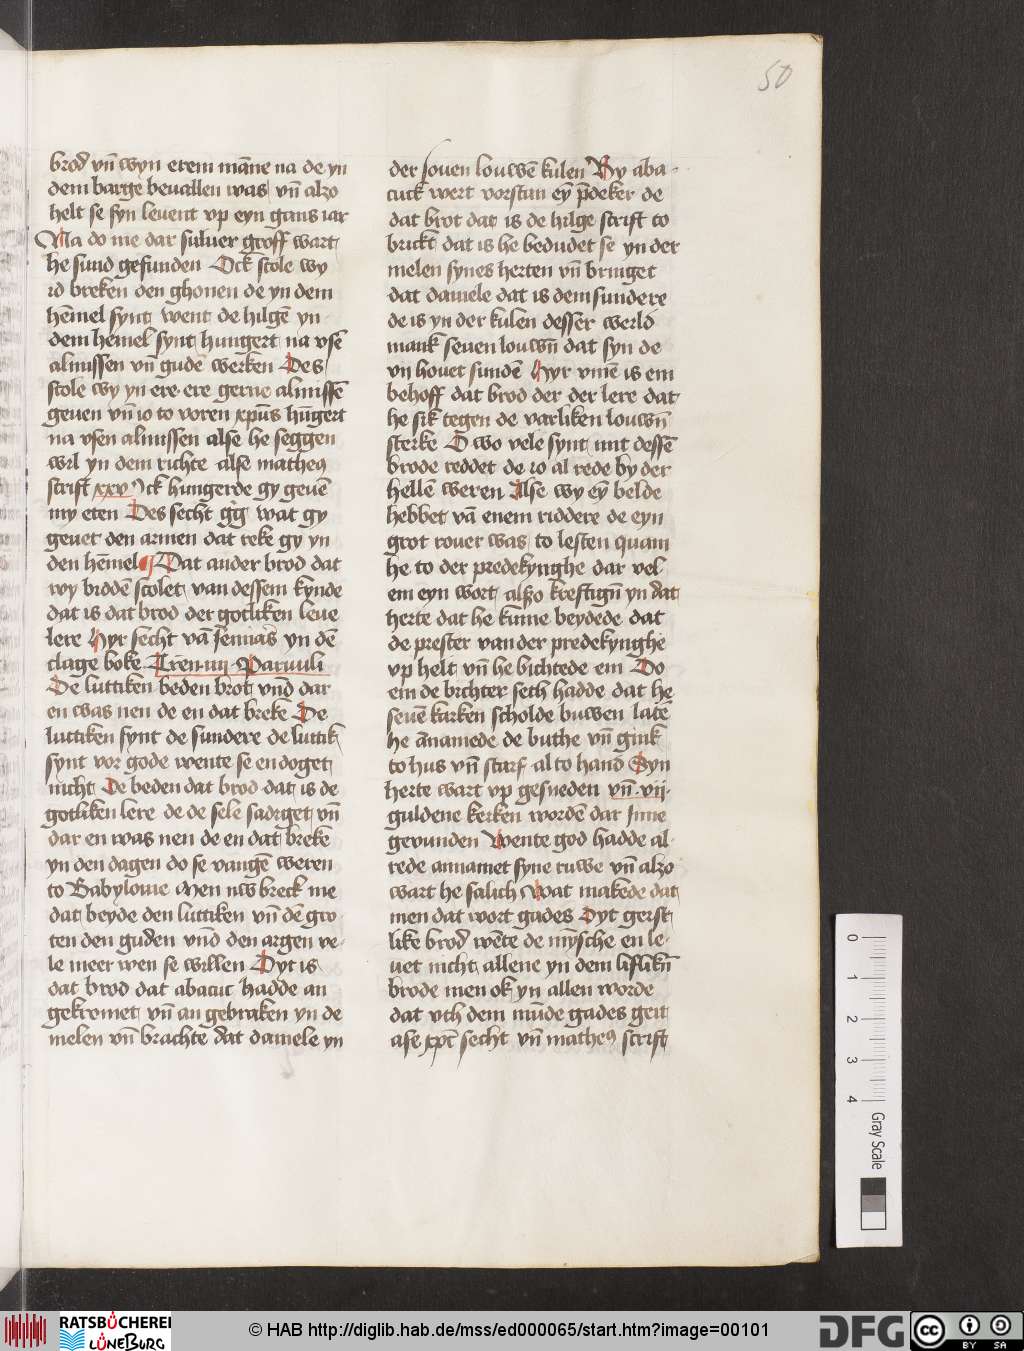 50
brod vn̄ wyn erem māne na de yn
dem barge bevallen was vn̄ alzo
helt se syn levent vp eyn gans iar
Na do me dar suluer groff wart
he sund gefunden Ock scole wy
id breken den ghonen de yn dem
hēmel synt went de hilgē yn
dem hemel synt hungert na vsē
almissen vn̄ gudē werken Des
scole wy yn ere ere gerne almissē
geuen vn̄ io to voren xp̄us hūgert
na vsen almissen alse he seggen
wil yn dem richte alse matheꝰ
scrift xxv Ick hungerde gy geuē
my eten Des secht gḡ wat gy
geuet den armen dat reke gy yn
den hēmel ¶ Dat ander brod dat
wy biddē scolet van dessem kynde
dat is dat brod der gotliken leue
lere Hyr secht vā ieremias yn dē
clage boke Trēn iiij Paruuli
De luttiken beden brot vnd̄ dar
en was nen de en dat brekē De
luttiken synt de sundere de luttik
synt vor gode wente se en doget
nicht De beden dat brod dat is de
gotliken lere de de sele sadiget vn̄
dar en was nen de en dat brekē
yn den dagen do se vangē weren
to Babylonie Men nw breck me
dat beyde den luttiken vn̄ dē gro
ten den guden vnd̄ den argen ve-
le meer wen se willen Dyt is
dat brod dat abacuc hadde an
gekromet vn̄ an gebraken yn de
melen vn̄ brachte dat daniele yn
der souen louwē kulen By aba-
cuck wert vorstan eȳ p̄deker de
dat brot dat is de hilge scrift to
brickt dat is he bedudet se yn der
melen synes herten vn̄ bringet
dat daniele dat is dem sundere
de is yn der kulen desser werld
mank seuen louwn̄ dat syn de
vn houet sundē Hyr vmē is em
behoff dat brod der der lere dat
he sik tegen de varliken louwn̄
sterke O wo vele synt mit dessē
brode reddet de io al rede by der
hellē weren Alse wy eȳ belde
hebbet vā enem riddere de eyn
grot rouer was to lesten quam
he to der predekynghe dar vel
em eyn wort also kreftign̄ yn dat
herte dat he kume beydede dat
de prester van der predekynghe
vp helt vn̄ he bichtede em Do
em de bichter sech hadde dat he
seuē karken scholde buwen latē
he ānamede de buthe vn̄ gink
to hus vn̄ starf al to hand Syn
herte wart vp gesneden vn̄ vij
guldene kerken wordē dar inne
gevunden Wente god hadde al-
rede annamet syne ruwe vn̄ alzo
wart he salich Wat makede dat
men dat wort gades Dyt gerst
like brod wēte de mȳsche en le-
uet nicht allene yn dem liflikn̄
brode men ok yn allen worde
dat vth dem mūde gades geit
ase xp̄c secht vn̄ matheꝰ scrift
0 1 2 3 4 Gray Scale
RATSBÜCHEREI
LÜNEBURG
© HAB http://diglib.hab.de/mss/ed000065/start.htm?image=00101
DFG
cc BY SA